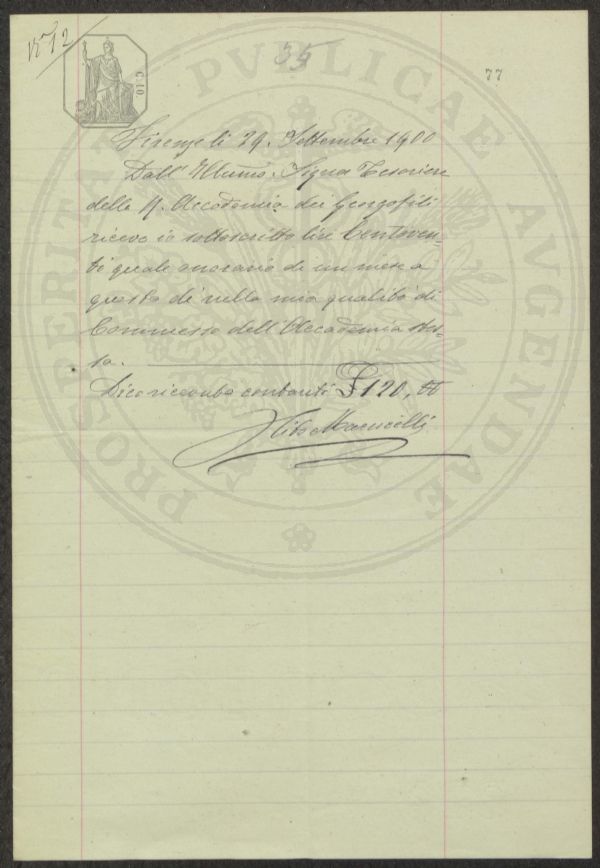 N° 12
35
77
C. 10
PROSPERITATI PVBLICAE AVGENDAE
Firenze li 29. Settembre 1900
Dall' Illumo. Signor Tesoriere
della R. Accademia dei Georgofili
ricevo io sottoscritto lire Centoven=
ti quale onorario di un mese a
questo dì nella mia qualità di
Commesso dell' Accademia stes=
sa.
Dico ricevute contanti £ 120,00